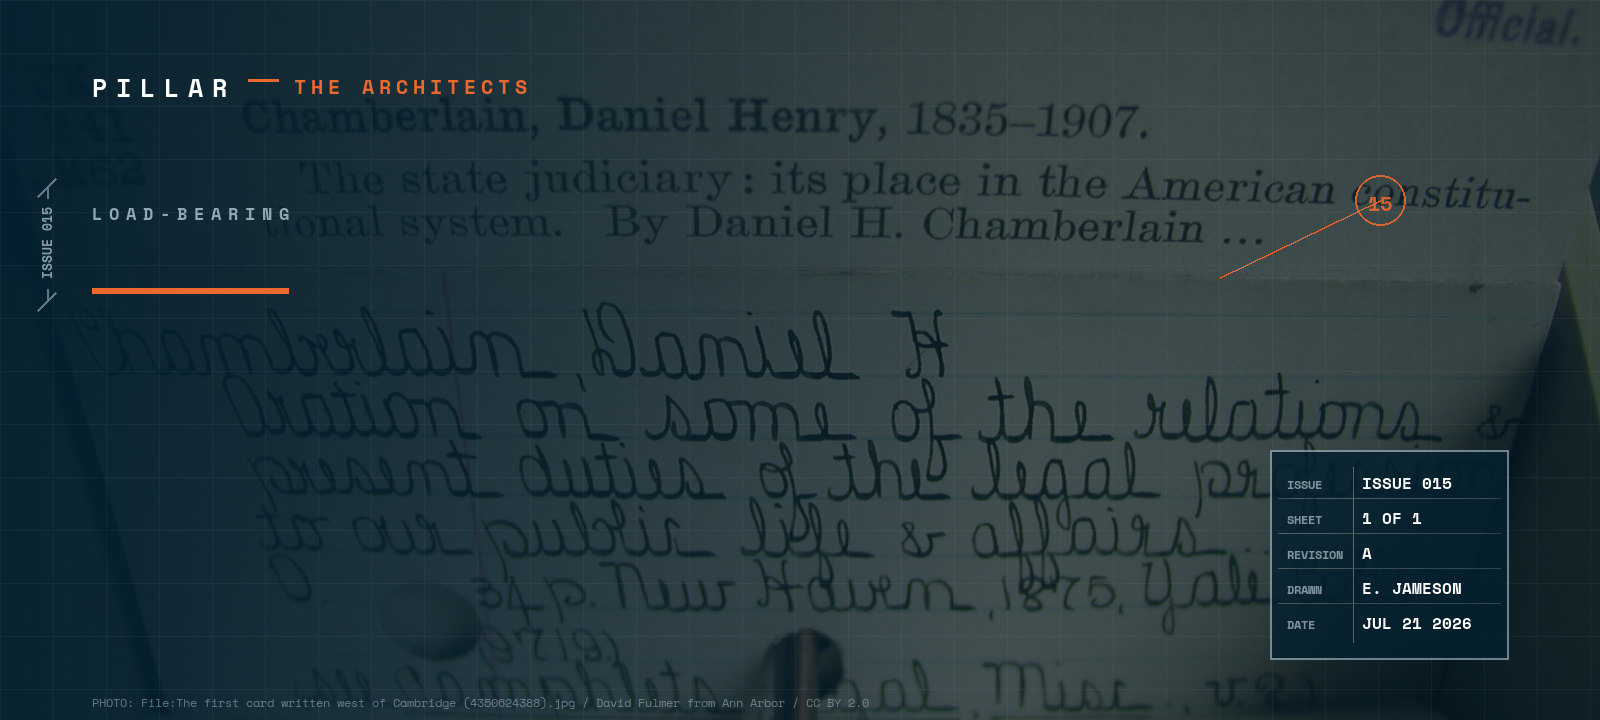 Official.
PILLAR — THE ARCHITECTS
341
M62
Chamberlain, Daniel Henry, 1835–1907.
The state judiciary : its place in the American constitu-
15
tional system. By Daniel H. Chamberlain ...
LOAD-BEARING
ISSUE 015
Chamberlain, Daniel H
Oration on some of the relations &
present duties of the legal
to our public life & affairs
34 p. New Haven, 1875, Yale
ISSUE ISSUE 015
SHEET 1 OF 1
REVISION A
DRAWN E. JAMESON
DATE JUL 21 2026
Misc. v.2)
PHOTO: File:The first card written west of Cambridge (4350624388).jpg / David Fulmer from Ann Arbor / CC BY 2.0